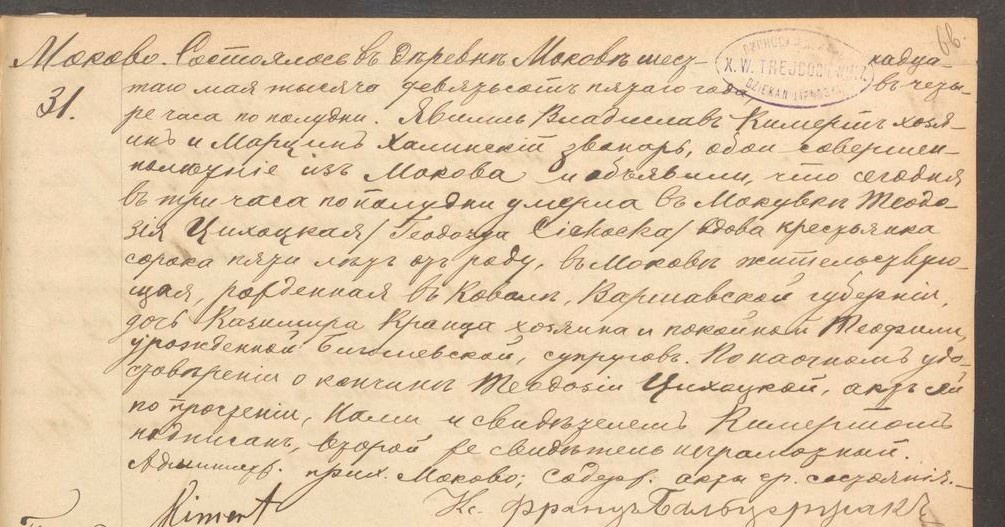 66.
Моково. Состоялось въ деревнѣ Моковѣ шест- надца-
31. таго мая тысяча девятьсотъ пятаго года, въ четы-
ре часа по полудни. Явились Владиславъ Кимертъ хозя-
инъ и Марцинъ Халинскій звонарь, обои совершен-
нолѣтніе изъ Мокова и объявили, что сегодня
въ три часа по полудни умерла въ Мокувкѣ Теодо-
зія Цихоцкая /Теодозуа Cichocka/ вдова крестьянка
сорока пяти лѣтъ отъ роду, въ Моковѣ жительствую-
щая, рожденная въ Ковалѣ, Варшавской губерніи,
дочь Казимира Кранца хозяина и покойной Теофили,
урожденной супруговъ. По наочномъ удо-
стовѣреніи о кончинѣ Теодозіи Цихоцкой, актъ сей
по прочтеніи, Нами и свидѣтелемъ Кимертомъ
подписанъ, второй же свидѣтель неграмотный.
Админист. прих. Моково; содерж. акты гр. состоянія.
Kiment Кс. Францъ
X. W. TREJDOSIEWICZ
DZIEKAN LIPNOSKI